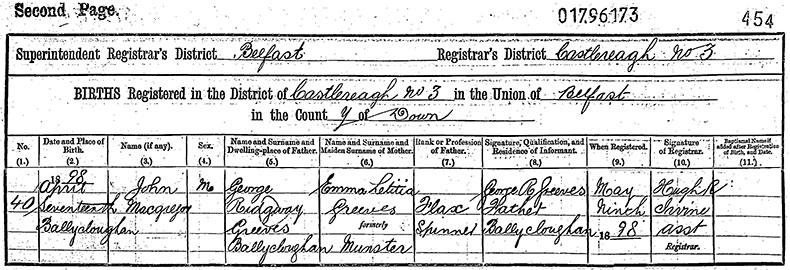 Second Page. 01796173 454
Superintendent Registrar's District Belfast Registrar's District Castlereagh No 3
BIRTHS Registered in the District of Castlereagh No 3 in the Union of Belfast
in the County of Down
No. Date and Place of Birth. Name (if any). Sex. Name and Surname and Dwelling-place of Father. Name and Surname and Maiden Surname of Mother. Rank or Profession of Father. Signature, Qualification, and Residence of Informant. When Registered. Signature of Registrar. Baptismal Name if added after Registration of Birth, and Date.
(1.) (2.) (3.) (4.) (5.) (6.) (7.) (8.) (9.) (10.) (11.)
1898
April John M George Emma Letitia George R Greeves May Hugh R
40 Seventeenth Macgregor Ridgway Greeves Flax Father Ninth Irvine
Ballycloughan Greeves formerly Spinner Ballycloughan 1898 asst
Ballycloughan Munster Registrar.